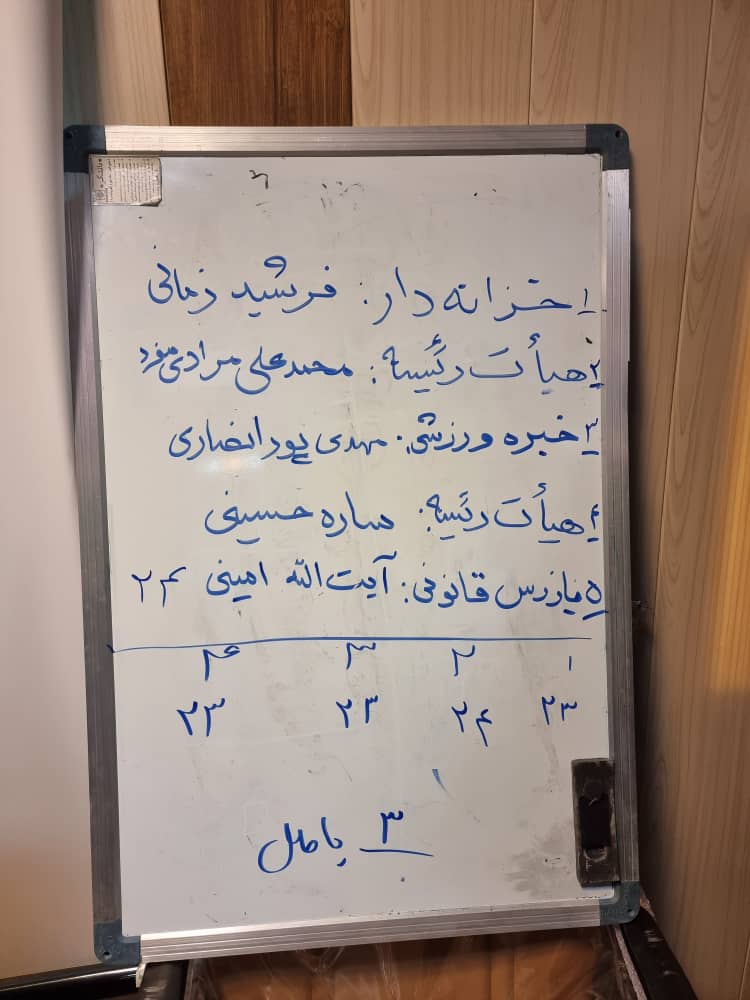 ۱ خزانه دار: فرشید زمانی
۲ هیأت رئیسه: محمدعلی مرادی منفرد
۳ خبره ورزشی: مهدی پورانصاری
۴ هیأت رئیسه: ساره حسینی
۵ بازرس قانونی: آیت الله امینی ۲۴
۱ ۲ ۳ ۴
۲۳ ۲۴ ۲۳ ۲۳
۳ باطل